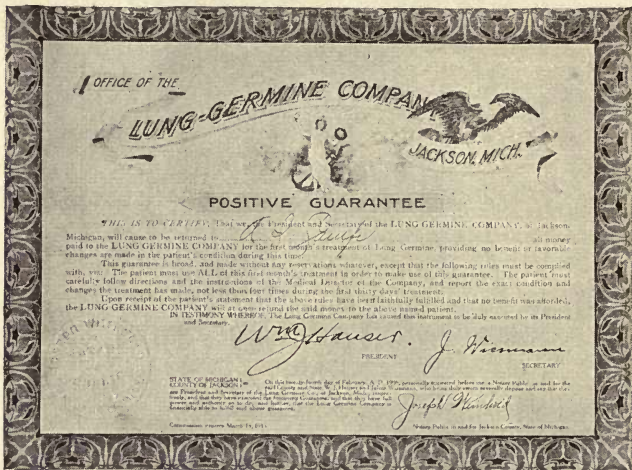 OFFICE OF THE
LUNG-GERMINE COMPANY
JACKSON, MICH.
POSITIVE GUARANTEE
THIS IS TO CERTIFY, That we, the President and Secretary of the LUNG GERMINE COMPANY, of Jackson,
Michigan, will cause to be returned to all money
paid to the LUNG GERMINE COMPANY for the first month's treatment of Lung Germine, providing no benefit or favorable
changes are made in the patient's condition during this time.
This guarantee is broad, and made without any reservations whatever, except that the following rules must be complied
with, viz: The patient must use ALL of this first month's treatment in order to make use of this guarantee. The patient must
carefully follow directions and the instructions of the Medical Director of the Company, and report the exact condition and
changes the treatment has made, not less than four times during the first thirty days' treatment.
Upon receipt of the patient's statement that the above rules have been faithfully fulfilled and that no benefit was afforded,
the LUNG GERMINE COMPANY will at once refund the said money to the above named patient.
IN TESTIMONY WHEREOF, The Lung Germine Company has caused this instrument to be duly executed by its President
and Secretary.
Wm J Hauser.
PRESIDENT
J. Wiemann
SECRETARY
STATE OF MICHIGAN
COUNTY OF JACKSON
On this twenty-fourth day of February, A. D. personally appeared before me a Notary Public in and for the
said County and State
are President and Secretary of the Lung Germine Co., of Jackson, Mich.,
Joseph
Commission expires March
Notary Public in and for Jackson County, State of Michigan